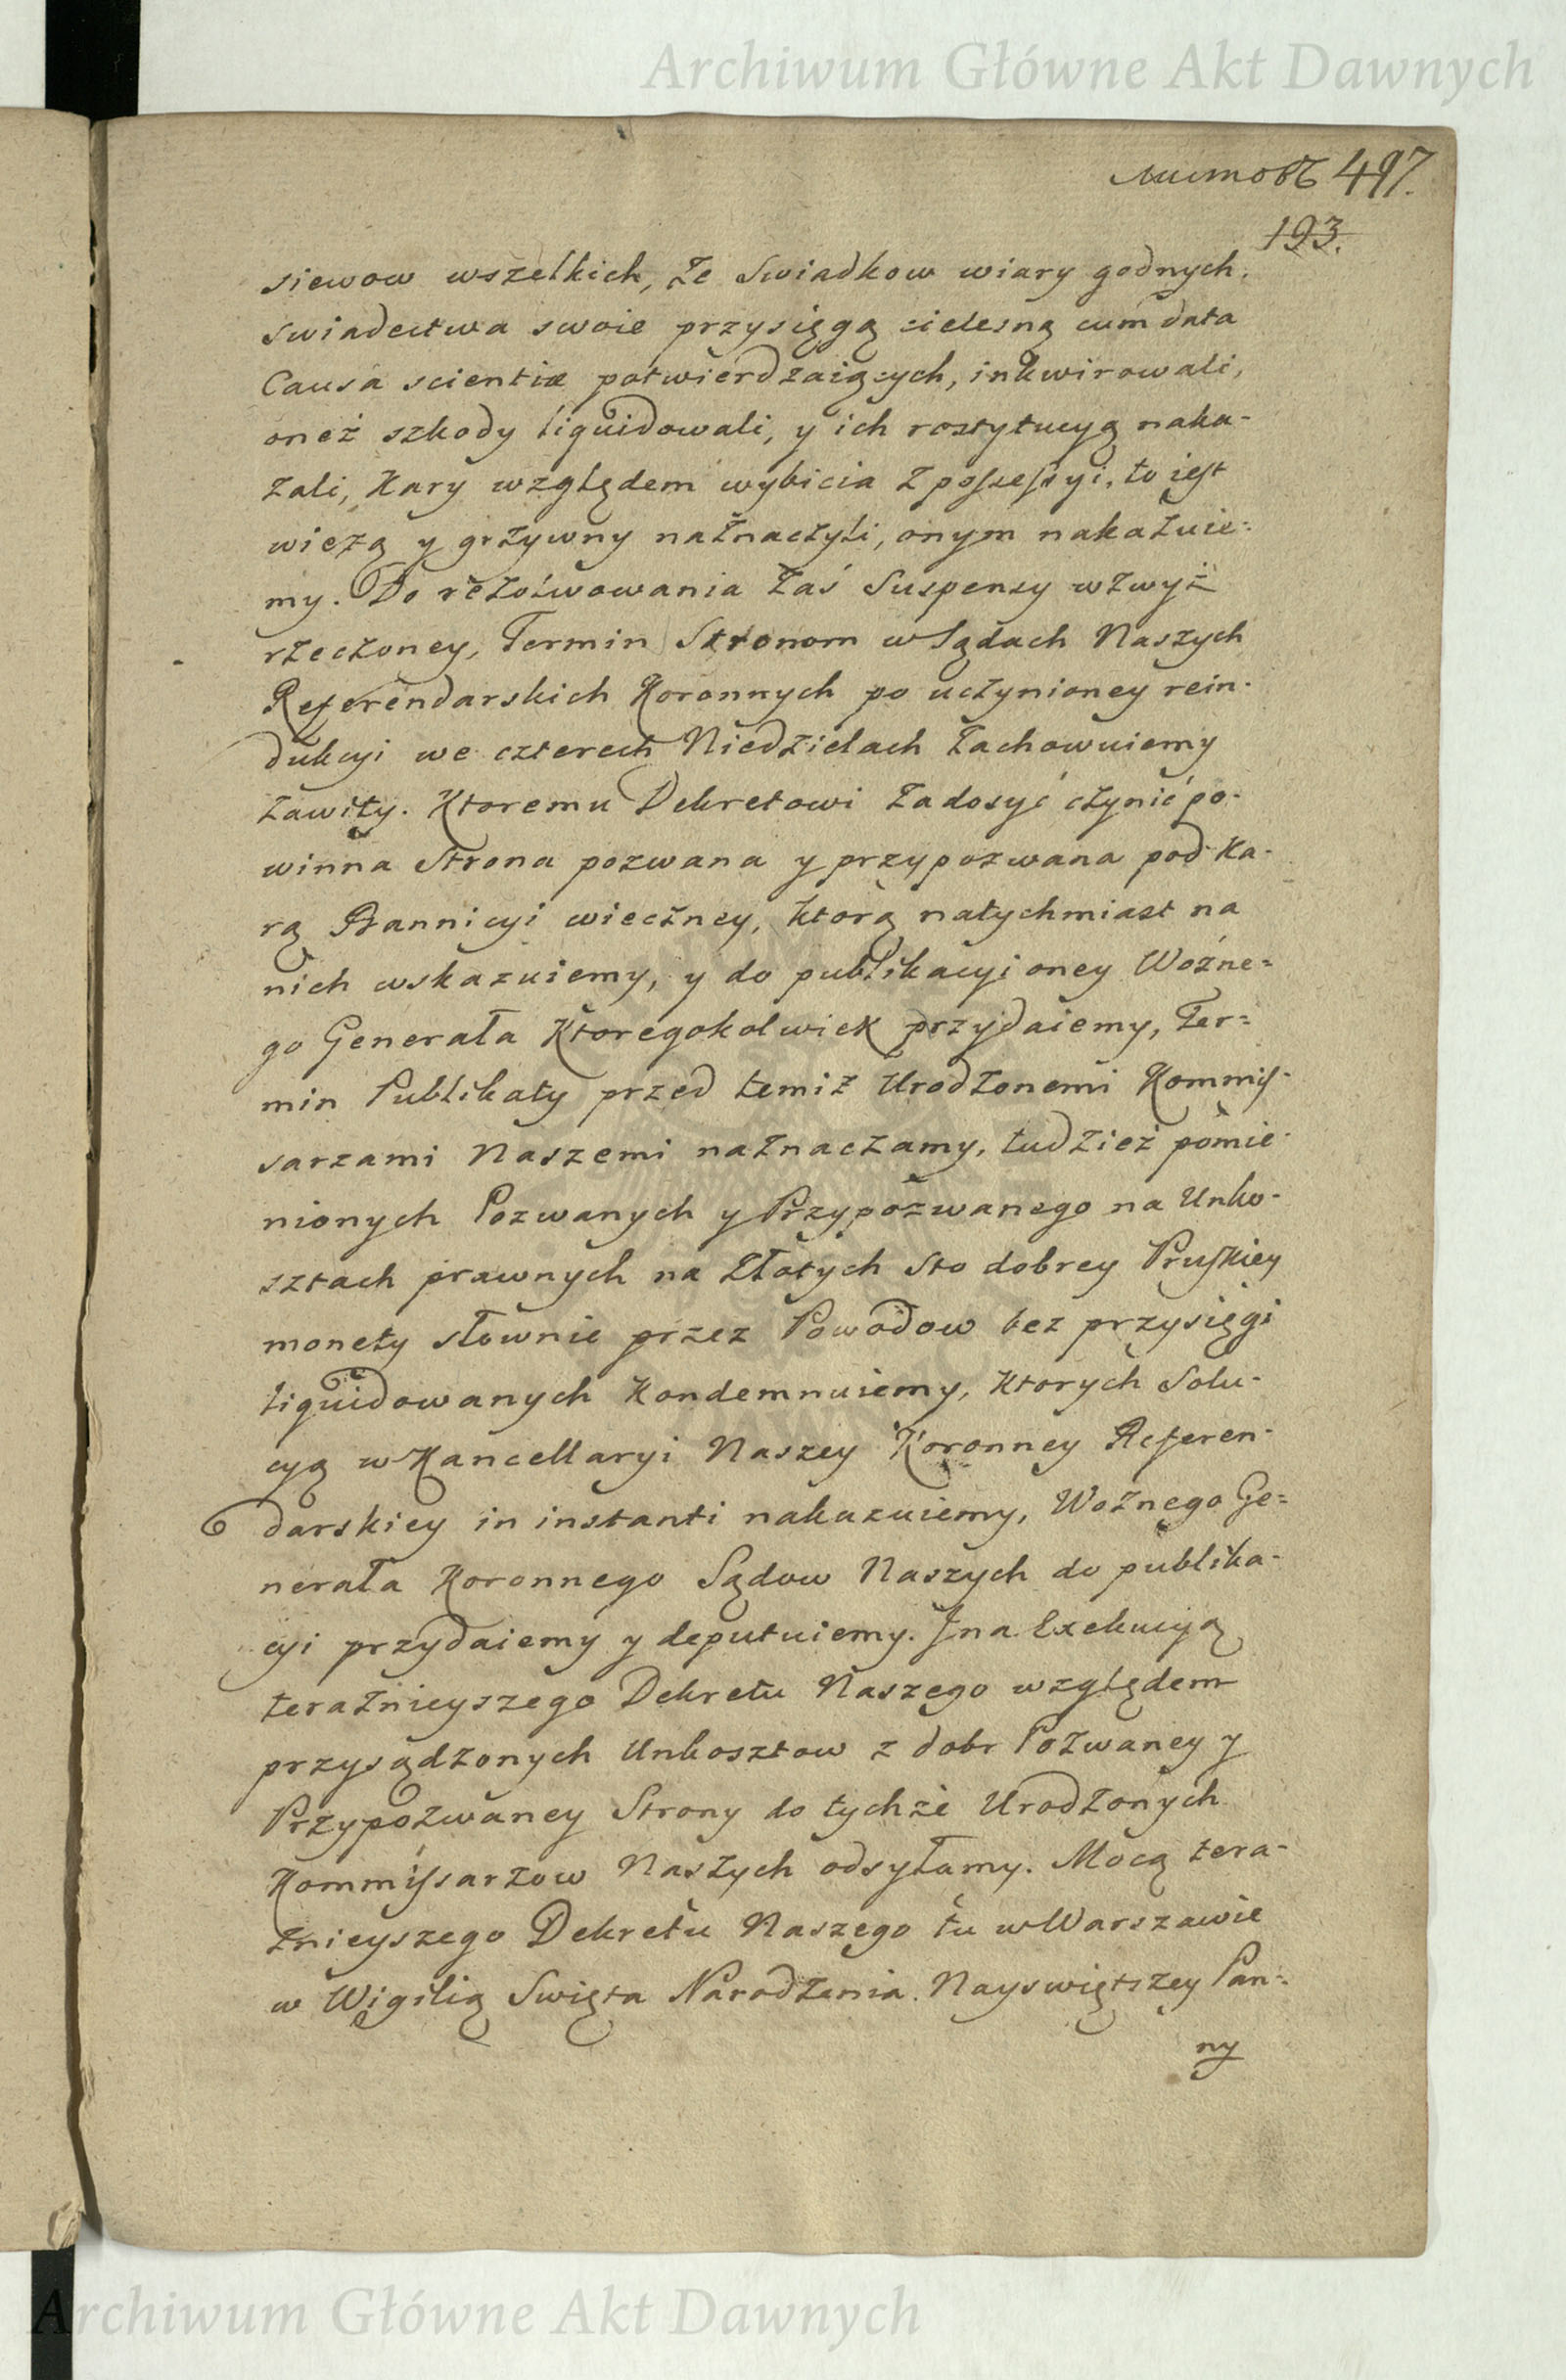 Archiwum Główne Akt Dawnych
листовъ 497.
193.
siewow wszelkich, że Swiadkow wiary godnych,
swiadectwa swoie przysięgą cielesną cum data
Causa scientiæ potwierdzaiących, inkwirowali,
oneż szkody liquidowali, y ich rostytucyą naka-
zali, Kary względem wybicia z possessyi, to iest
wieżą y grzywny naznaczyli, onym nakazuie=
my. Do rezolwowania zaś Suspensy wzwyż
rzeczoney, Termin Stronom w Sądach Naszych
Referendarskich Koronnych po uczynioney rein-
dukcyi we czterech Niedzielach zachowuiemy
zawity. Ktoremu Dekretowi zadosyć czynić po-
winna Strona pozwana y przypozwana pod Ka-
rą Bannicyi wieczney, ktorą natychmiast na
nich wskazuiemy, y do publikacyi oney Woźne=
go Generała Ktoregokolwiek przydaiemy, Ter=
min Publikaty przed temiż Urodzonemi Kommis-
sarzami Naszemi naznaczamy, tudzież pomie-
nionych Pozwanych y Przypozwanego na Unko-
sztach prawnych na Złotych Sto dobrey Pruskiey
monety słownie przez Powodow bez przysięgi
liquidowanych Kondemnuiemy, Ktorych Solu-
cyą w Kancellaryi Naszey Koronney Referen-
darskiey in instanti nakazuiemy, Woźnego Ge=
nerała Koronnego Sądow Naszych do publika-
cyi przydaiemy y deputuiemy. J na Exekucyą
teraznieyszego Dekretu Naszego względem
przysądzonych Unkosztow z dobr Pozwaney y
Przypozwaney Strony do tychże Urodzonych
Kommissarzow Naszych odsyłamy. Mocą tera-
znieyszego Dekretu Naszego tu w Warszawie
w Wigilią Swięta Narodzenia Nayswiętszey Pan-
ny
Archiwum Główne Akt Dawnych